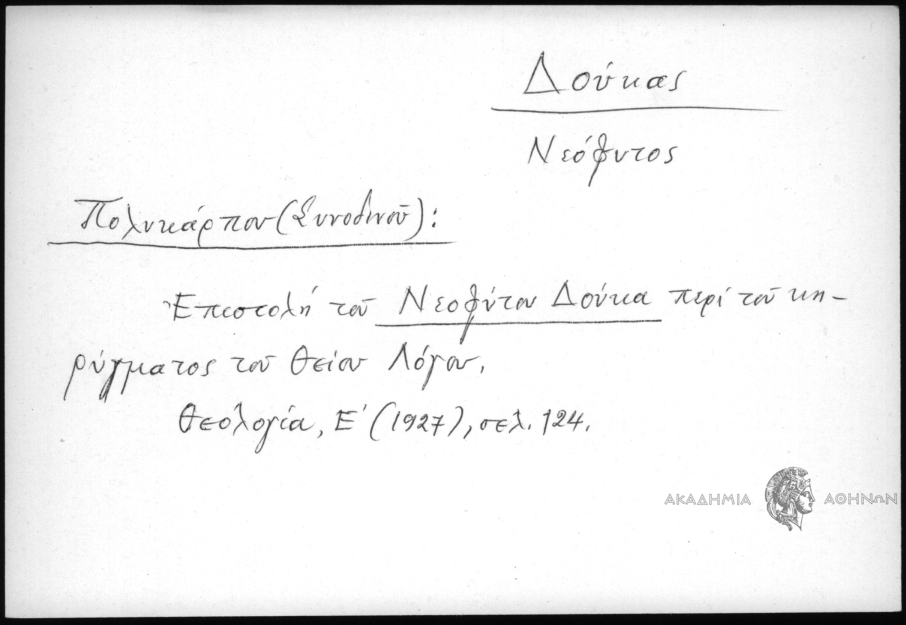 Δούκας
Νεόφυτος
Πολυκάρπου (Συνοδινοῦ):
Ἐπιστολή τοῦ Νεοφύτου Δούκα περί τοῦ κη-
ρύγματος τοῦ θείου Λόγου,
Θεολογία, Ε' (1927), σελ. 124.
ΑΚΑΔΗΜΙΑ ΑΘΗΝΩΝ